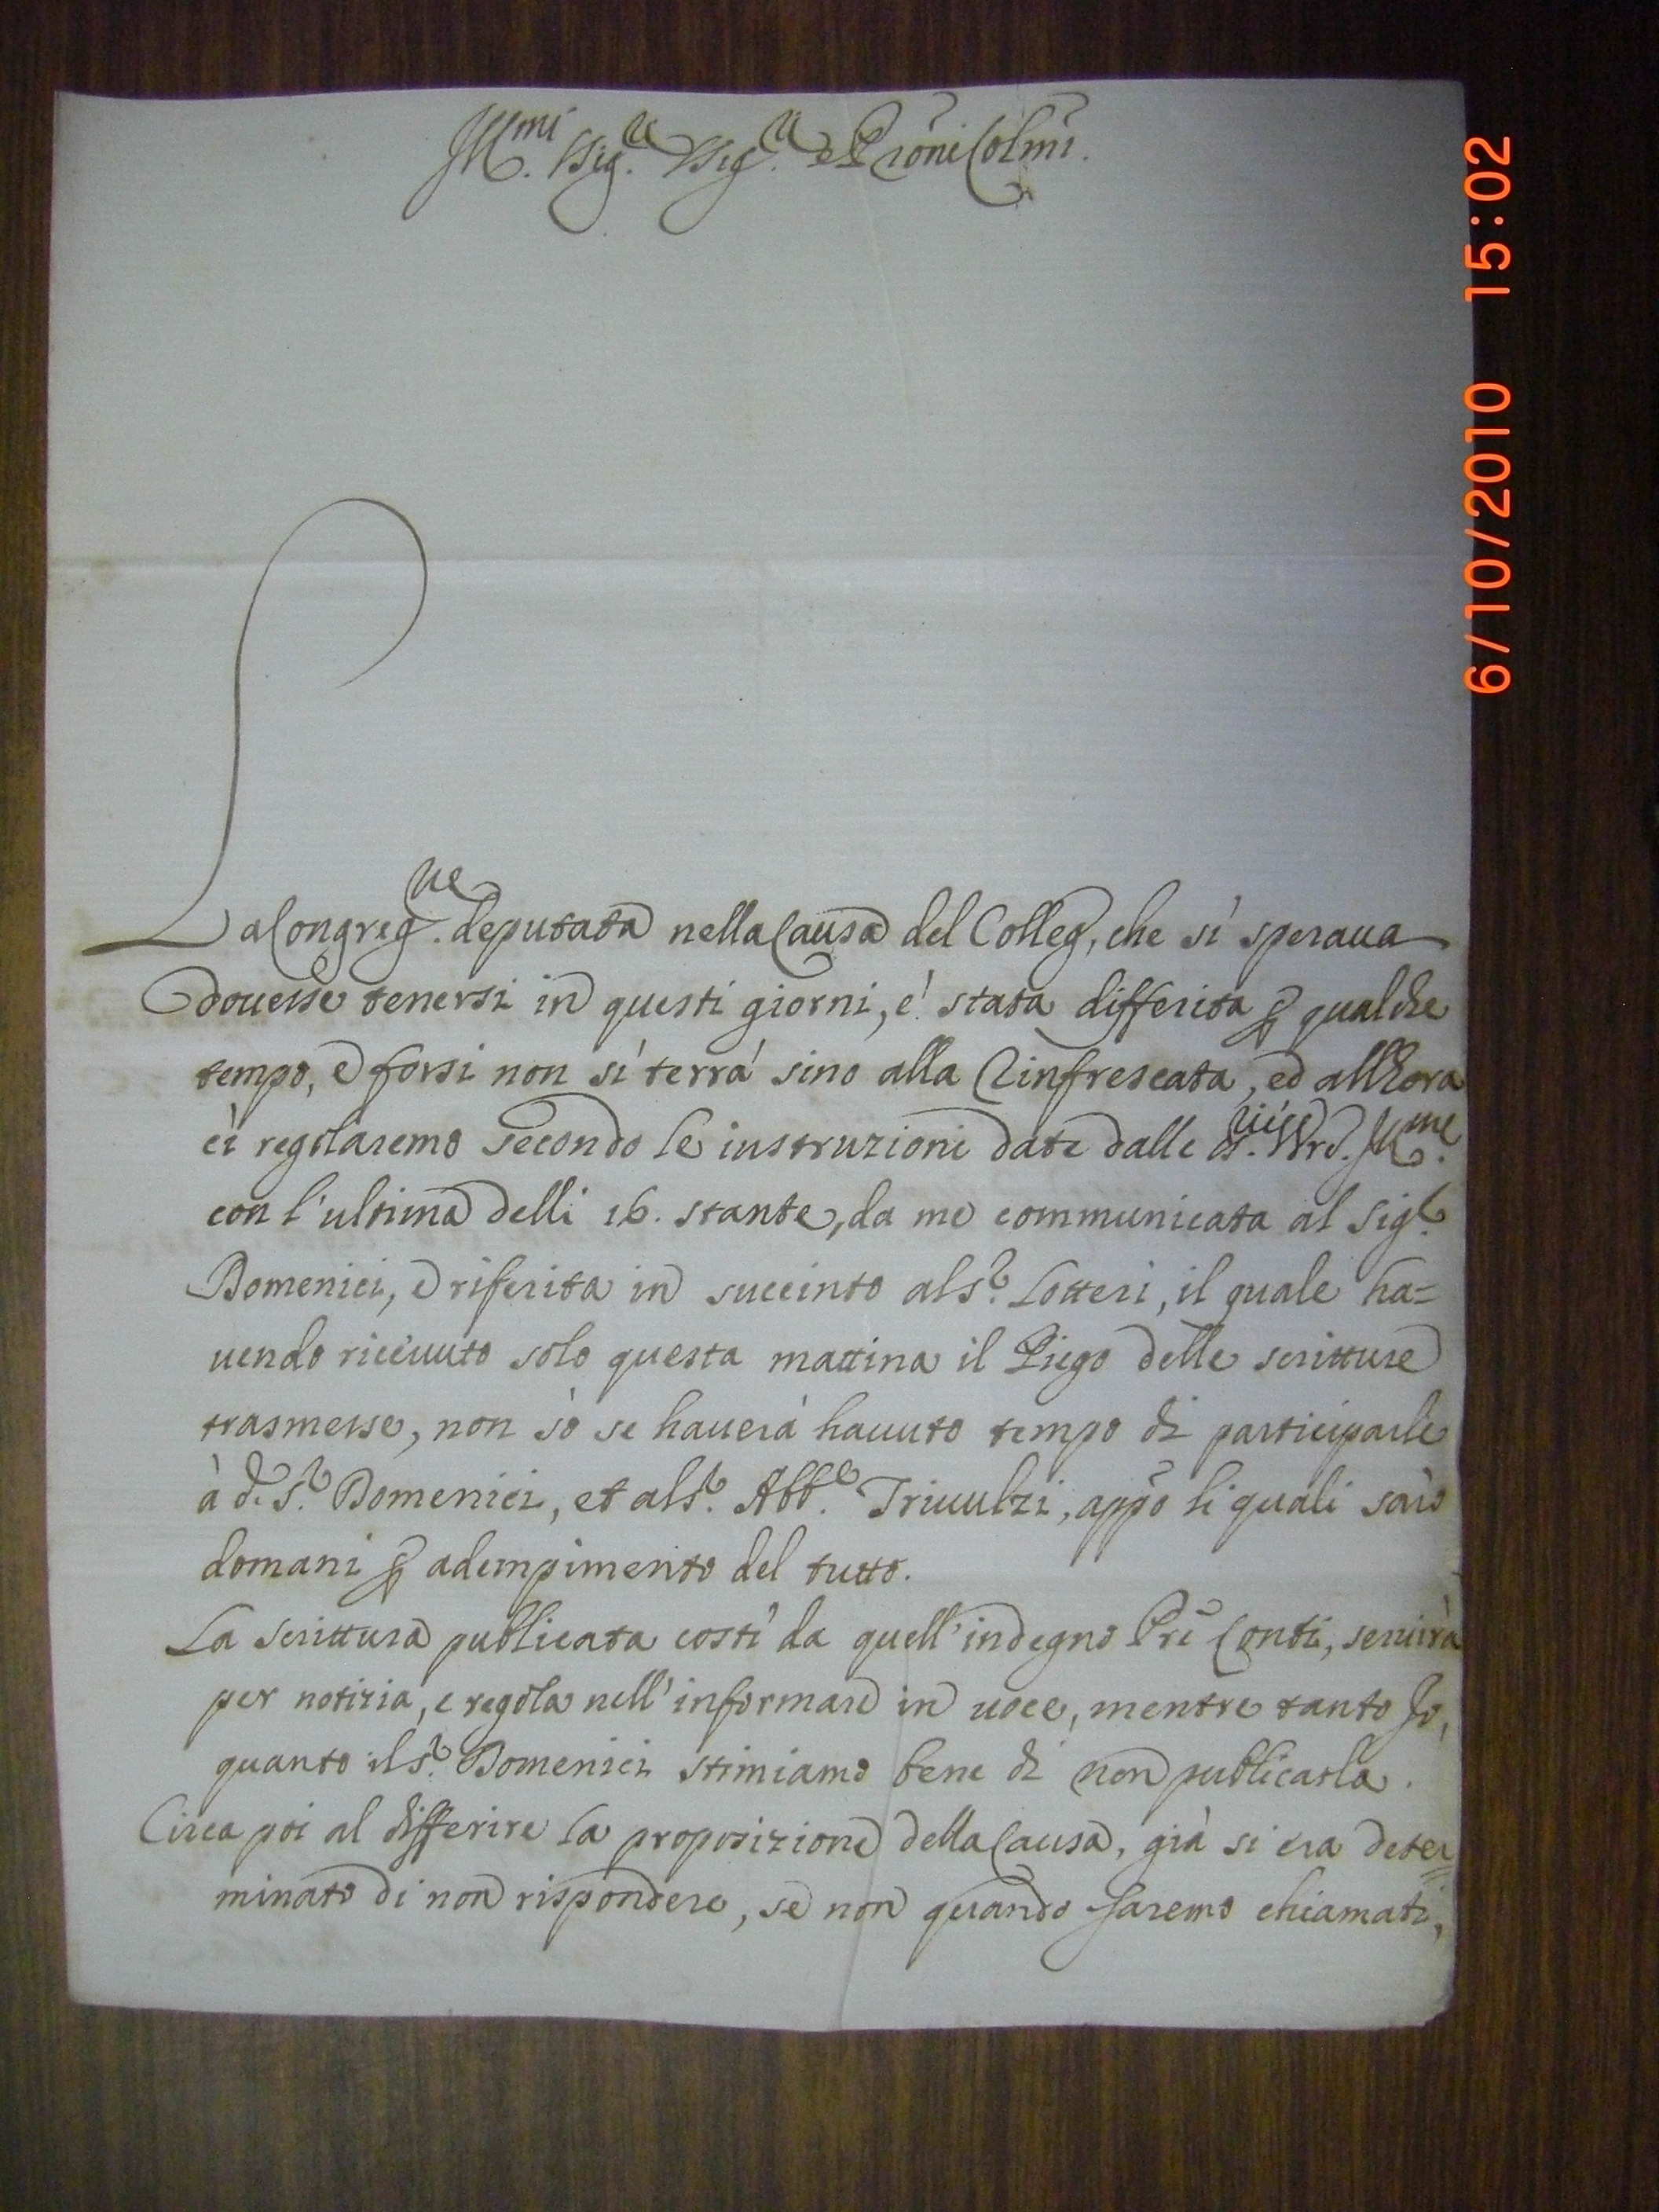 Ill.mi Sig.ri Sig.ri e Prõni Colmi.
La Congreg.ne deputata nella Causa del Colleg, che sì speraua
douesse tenersi in questi giorni, è stata differita p qualche
tempo, e forsi non sì terrà sino alla Rinfrescata, ed allhora
ci regolaremo secondo le instruzioni date dalle Ill.me
con l'ultima delli 16. stante, da me communicata al Sig.r
Domenici, e riferita in succinto al S.r Lotteri, il quale ha=
uendo riceuuto solo questa mattina il Piego delle scritture
trasmesse, non sò se hauerà hauuto tempo di participarle
à d. S.r Domenici, et al S.r Abb.e Triuulzi, appõ li quali sarò
domani p adempimento del tutto.
La scrittura publicata costì da quell'indegno Prẽ Conti, seruirà
per notizia, e regola nell'informare in uoce, mentre tanto Io,
quanto il S.r Domenici stimiamo bene di non publicarla.
Circa poi al differire la proposizione della Causa, già si era deter=
minato di non rispondere, se non quando saremo chiamati,
6/10/2010 15:02